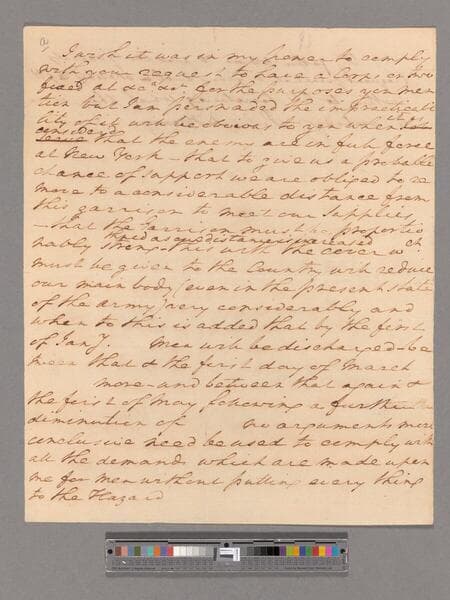 I wish it was in my power to comply
with your request to have a Corps
fixed at &c &ca for the purposes you men
tion but I am persuaded the impracticabi
lity of it will be obvious to you when it is
considered that the enemy are in full force
at New York - that to give us a probable
chance of support we are obliged to re
move to a considerable distance from
this garrison to meet our Supplies
- that the Garrison must be proportio
ned as our distance is increased
nably strong this with the cover wch
must be given to the Country will reduce
our main body (even in the present state
of the army) very considerably and
when to this is added that by the first
of Jany. men will be discharged - be
tween that & the first day of March
more - and between that again &
the first of May following a further
diminution of no arguments more
conclusive need be used to comply with
all the demands which are made upon
me for men without putting every thing
to the Hazard